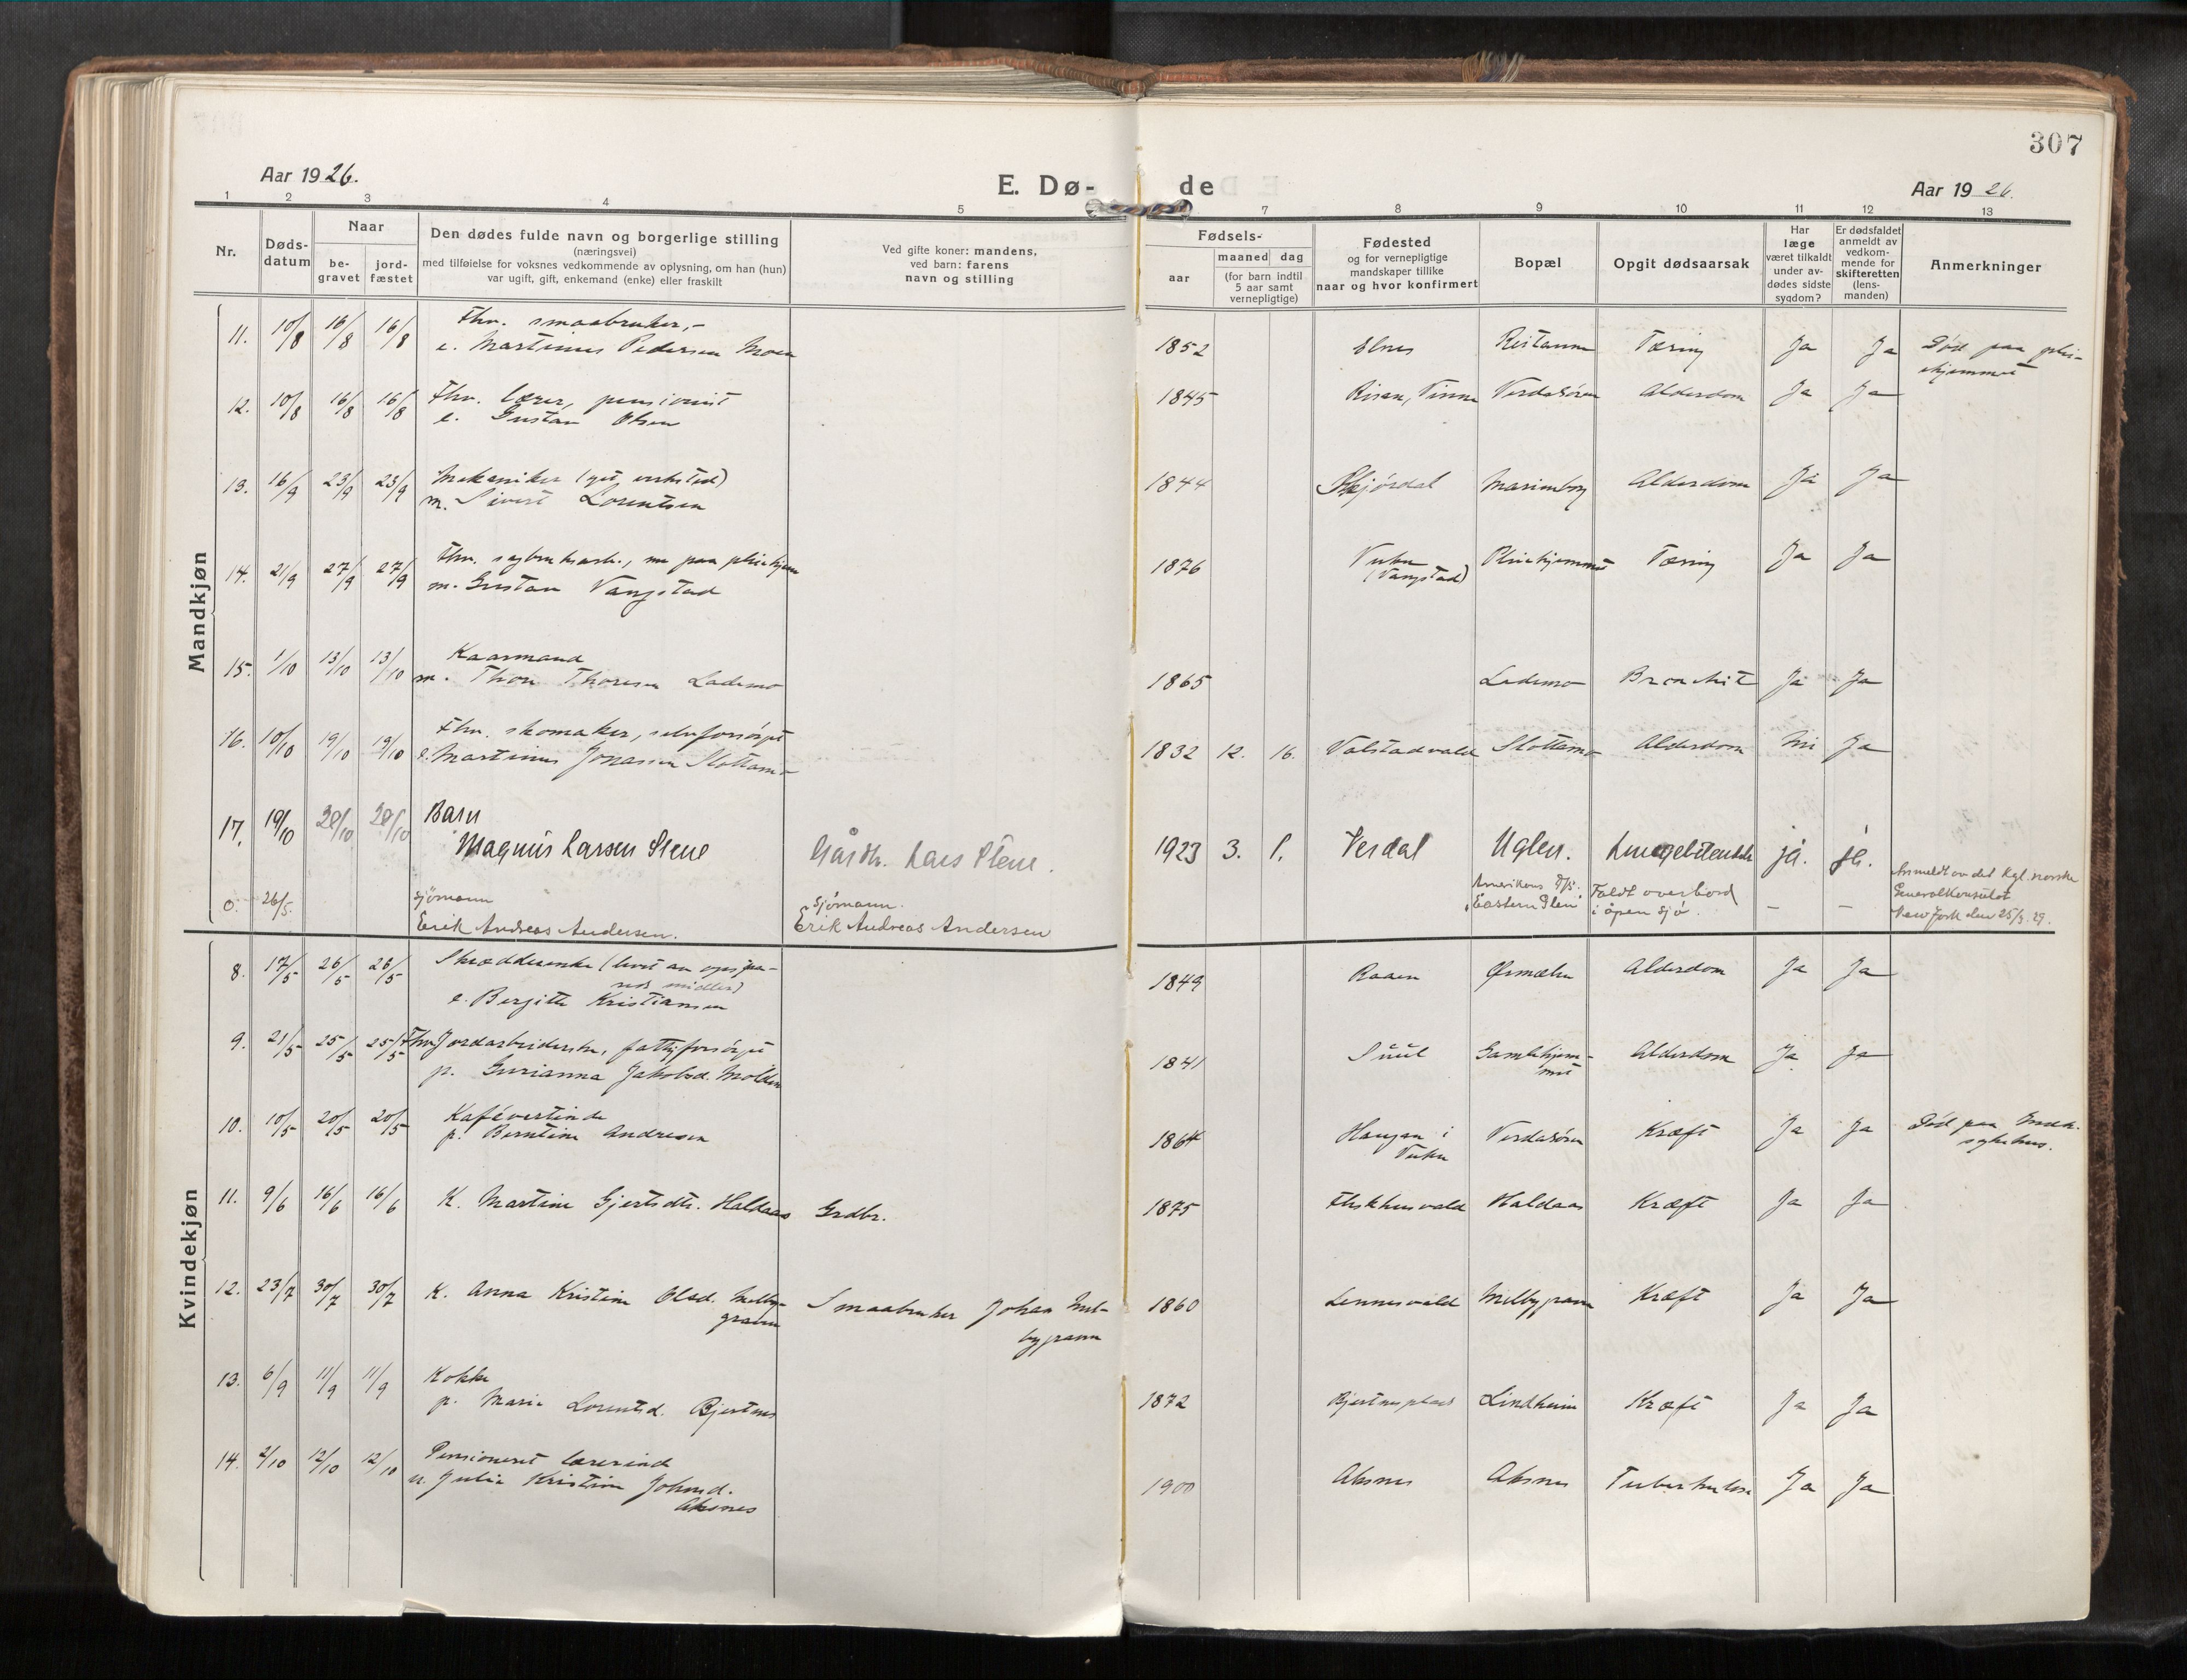 307
Aar 1926.
E. Dø-
de
Aar 1926.
1 2 3 4 5 7 8 9 10 11 12 13
Nr.
Døds-
datum
Naar
be-
gravet
jord-
fæstet
Den dødes fulde navn og borgerlige stilling
(næringsvei)
med tilføielse for voksnes vedkommende av oplysning, om han (hun)
var ugift, gift, enkemand (enke) eller fraskilt
Ved gifte koner: mandens,
ved barn: farens
navn og stilling
Fødsels-
aar
maaned dag
(for barn indtil
5 aar samt
vernepligtige)
Fødested
og for vernepligtige
mandskaper tillike
naar og hvor konfirmert
Bopæl
Opgit dødsaarsak
Har
læge
været tilkaldt
under av-
dødes sidste
sygdom?
Er dødsfaldet
anmeldt av
vedkom-
mende for
skifteretten
(lens-
manden)
Anmerkninger
Mandkjøn
Fhv. smaabruker,-
11. 10/8 16/8 16/8 e. Martinus Pedersen Moen 1852 Elnes Tæring Ja Ja Død paa plei-
ehjemmet
Fhv. lærer, pensionist
12. 10/8 16/8 16/8 e. Gustav Olsen 1845 Risan, Vinne Verdalsøren Alderdom Ja Ja
Mekaniker (eget verksted)
13. 16/9 23/9 23/9 m. Sivert Lorentsen 1844 Skjørdal Marienborg Alderdom Ja Ja
Fhv. sagbruksarb., nu paa pleiehjem
14. 21/9 27/9 27/9 m. Gustav Vangstad 1876 Vuku Pleiehjemmet Tæring Ja Ja
(Vangstad)
Kaarmand
15. 1/10 13/10 13/10 m. Thore Thoresen Lademo 1865 Lademo Bronchit Ja Ja
Fhv. skomaker, selvforsørget
16. 10/10 19/10 19/10 e. Martinus Jonassen Slottemo 1832 12. 16. Valstadvald Slottemo Alderdom Nei Ja
Barn
17. 19/10 28/10 28/10 Magnus Larsen Stene Gårdb. Lars Stene. 1923 3. 1. Verdal Uglen. ja. ja.
0. 26/5. Sjømann Sjømann. Amerikans D/S. Faldt overbord Anmeldt av det kgl. norske
Erik Andreas Andersen. Erik Andreas Andersen "Eastern Glen" i åpen sjø. – – Generalkonsulat
New York den 25/3. 29.
Kvindekjøn
Skredderenke (levet av opspa-
rede midler)
8. 17/5 26/5 26/5 e. Bergitte Kristiansen 1849 Raaen Ørmelen Alderdom Ja Ja
9. 21/5 25/5 25/5 Fhv. Jordarbeiderske, fattigforsørget
p. Gurianna Jakobsd. Molden 1841 Suul Gamlehjem-
met Alderdom Ja Ja
Kafévertinde
10. 10/5 20/5 20/5 p. Berntine Andresen 1864 Haugan i
Vuku Verdalsøren Kræft Ja Ja Død paa Innh.
sykehus.
11. 9/6 16/6 16/6 K. Martine Gjertsdtr. Haldaas Grdbr. 1875 Flskhusvald Haldaas Kræft Ja Ja
12. 23/7 30/7 30/7 K. Anna Kristine Olsd. Melby-
graven Smaabruker Johan Mel-
bygraven 1860 Lennesvald Melbygraven Kræft Ja Ja
Kokke
13. 6/9 11/9 11/9 p. Marie Lorentsd. Bjertnes 1872 Bjertnesplads Lindheim Kræft Ja Ja
Pensioneret lærerinde
14. 2/10 12/10 12/10 u. Julie Kristine Johnsd.
Aksnes 1900 Aksnes Aksnes Tuberkulose Ja Ja